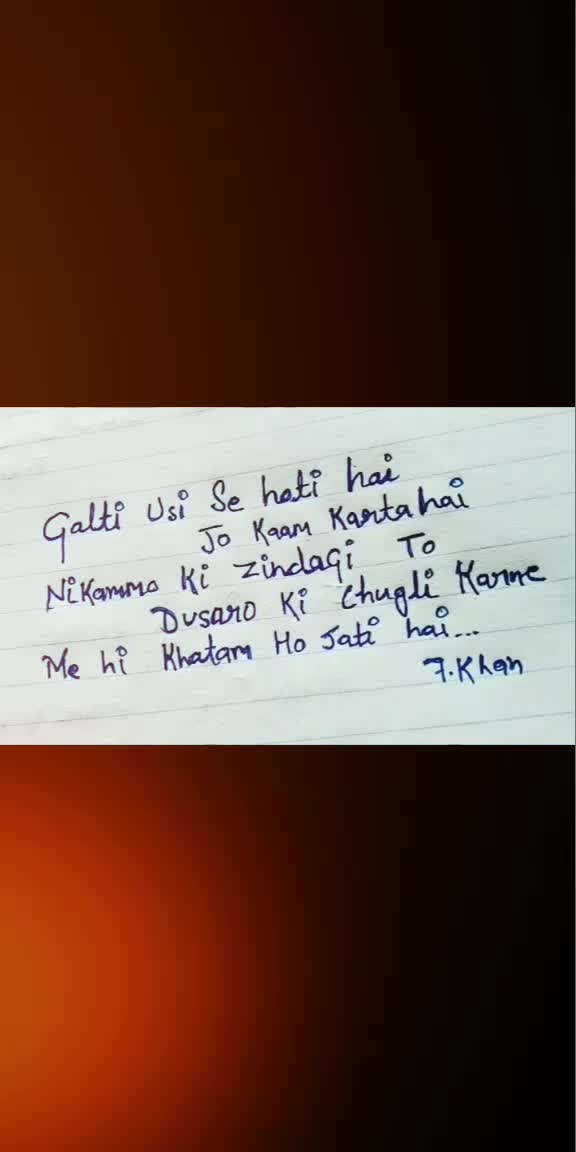 Galti Usi Se hoti hai
Jo Kaam Karta hai
Nikammo Ki Zindagi To
Dusaro Ki Chugli Karne
Me hi Khatam Ho Jati hai...
F.Khan